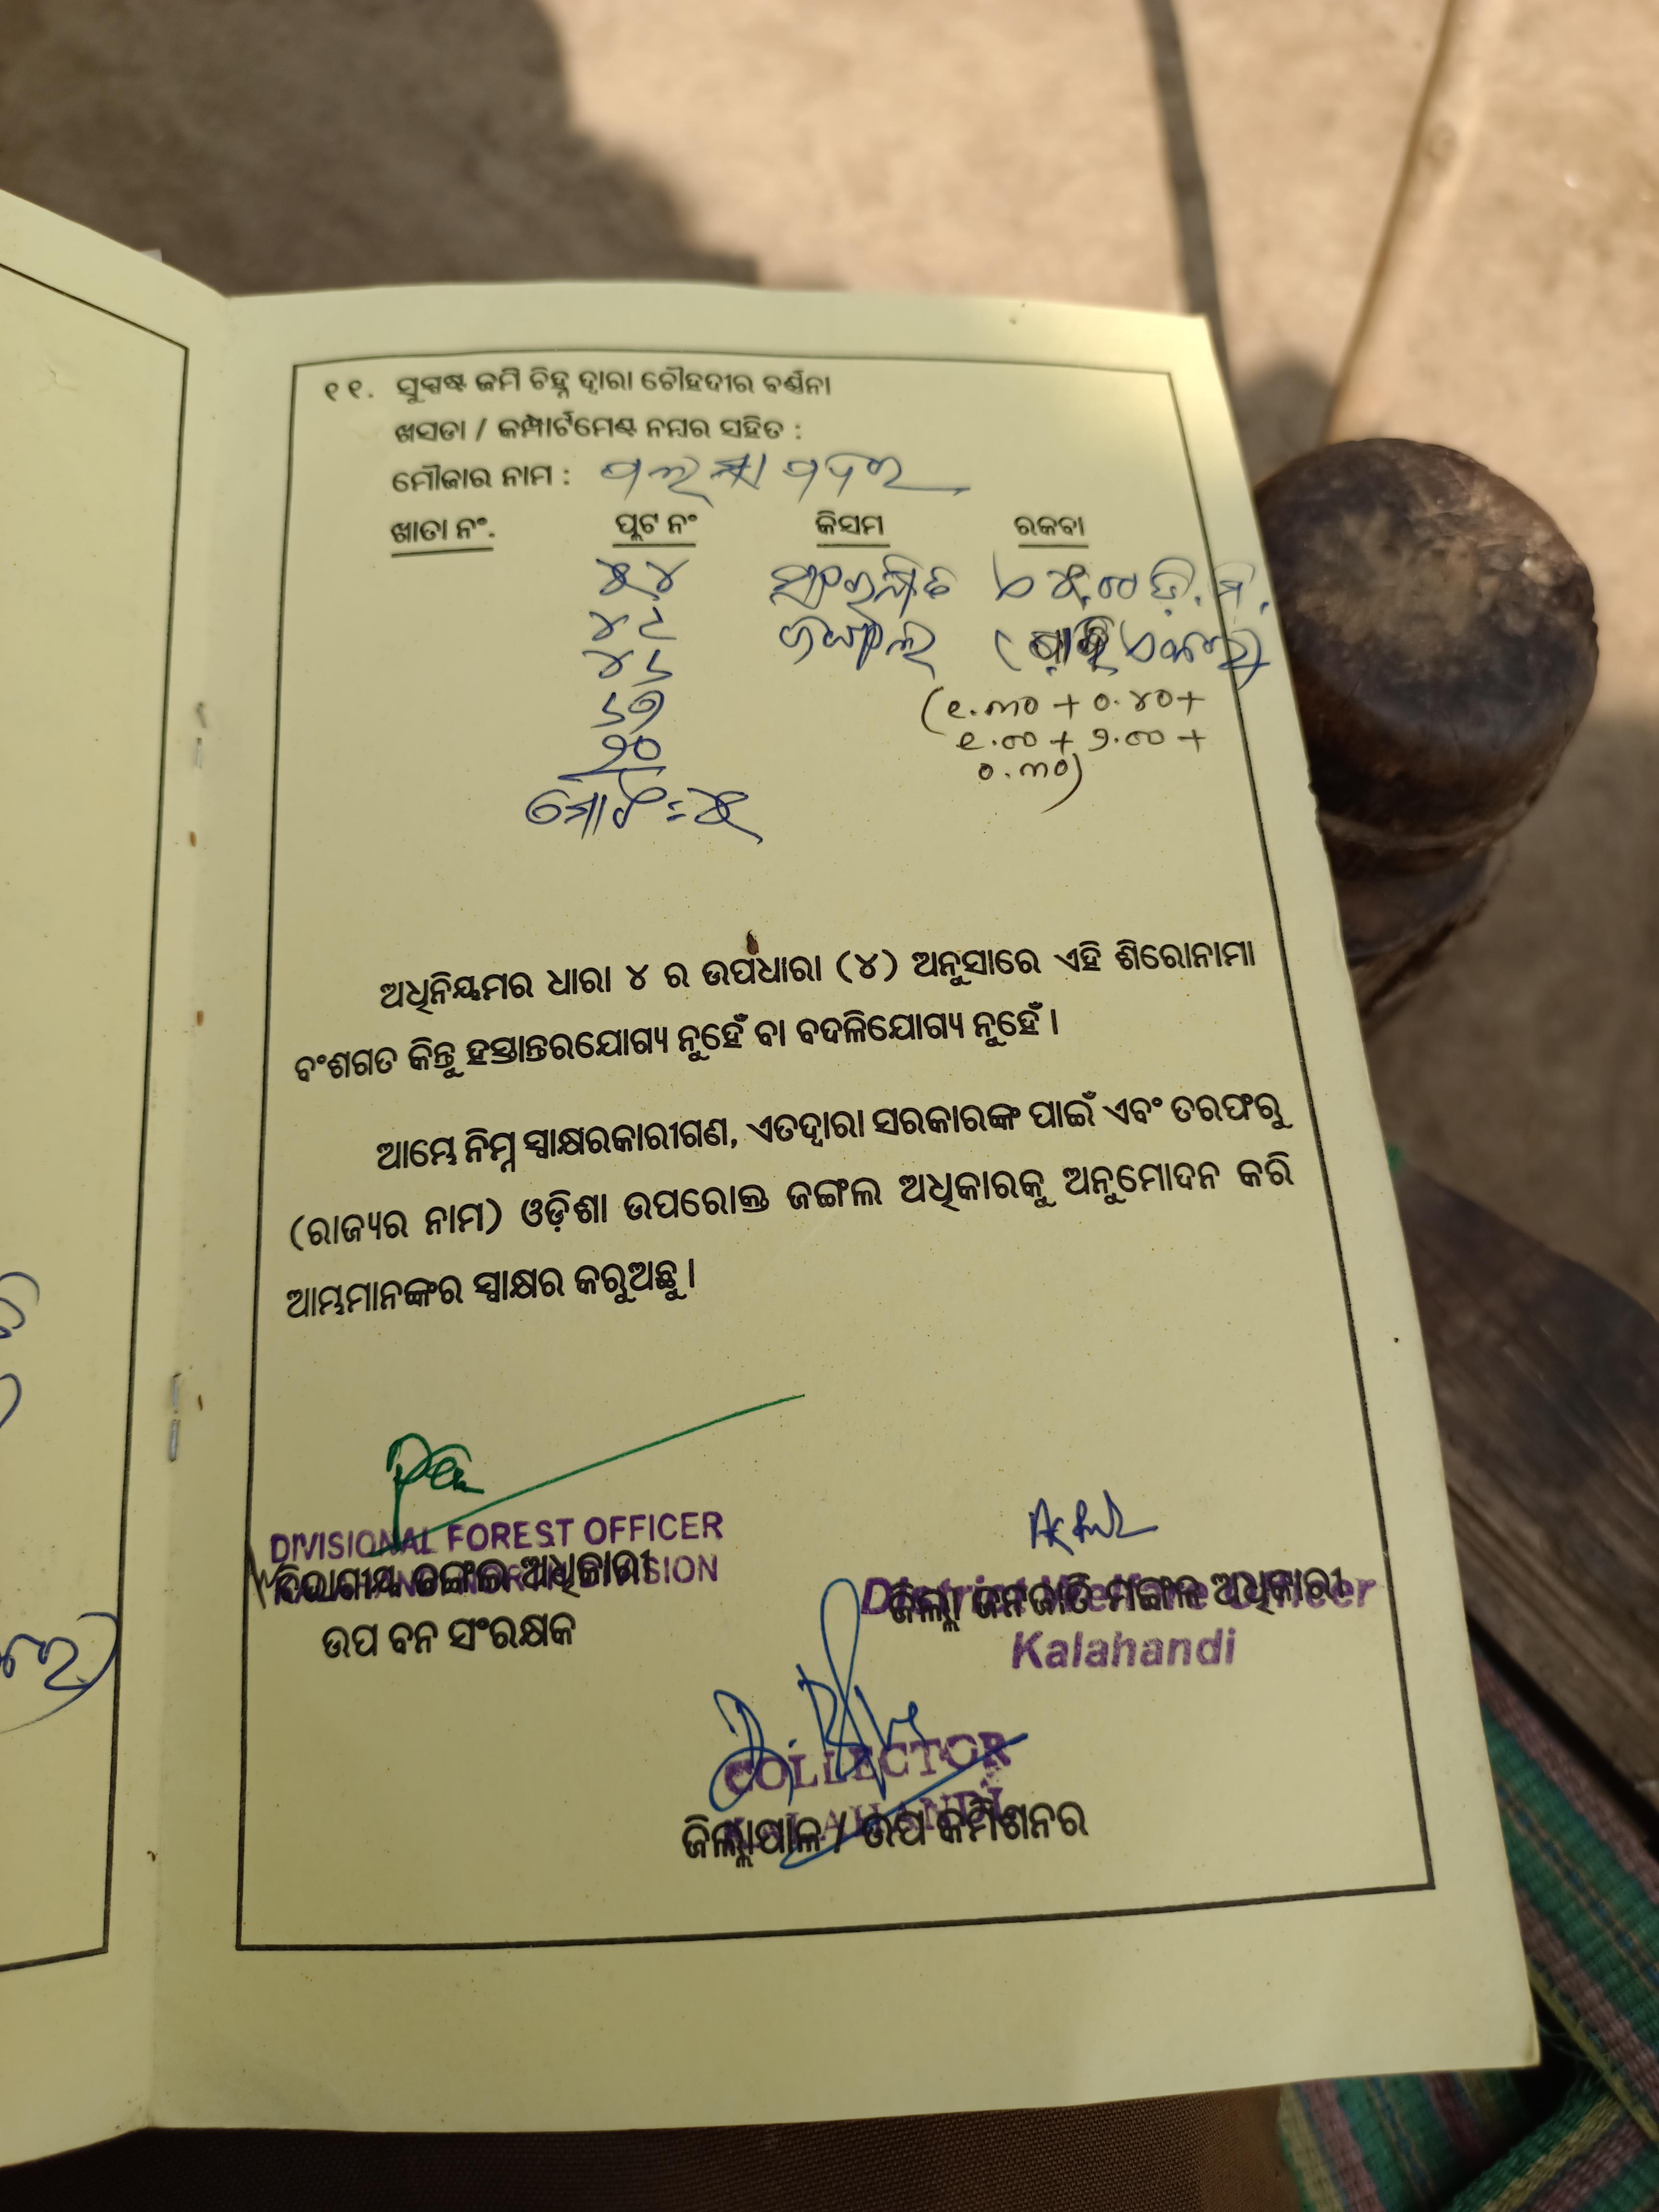 ୧୧. ସୁସ୍ପଷ୍ଟ ଜମି ଚିହ୍ନ ଦ୍ୱାରା ଚୌହଦୀର ବର୍ଣ୍ଣନା
ଖସଡା / କମ୍ପାର୍ଟମେଣ୍ଟ ନମ୍ବର ସହିତ :
ମୌଜାର ନାମ :
ଖାତା ନଂ. ପ୍ଲଟ ନଂ କିସମ ରକବା
୫୪ ସଂରକ୍ଷିତ
୪୯ ଜଙ୍ଗଲ
୪୬
୬୭ (୧.୩୦ + ୦.୪୦ +
୭୦ ୧.୦୦ + ୨.୦୦ +
୦.୩୦)
ମୋଟ = ୫
ଅଧିନିୟମର ଧାରା ୪ ର ଉପଧାରା (୪) ଅନୁସାରେ ଏହି ଶିରୋନାମା
ବଂଶଗତ କିନ୍ତୁ ହସ୍ତାନ୍ତରଯୋଗ୍ୟ ନୁହେଁ ବା ବଦଳିଯୋଗ୍ୟ ନୁହେଁ ।
ଆମ୍ଭେ ନିମ୍ନ ସ୍ୱାକ୍ଷରକାରୀଗଣ, ଏତଦ୍ୱାରା ସରକାରଙ୍କ ପାଇଁ ଏବଂ ତରଫରୁ
(ରାଜ୍ୟର ନାମ) ଓଡ଼ିଶା ଉପରୋକ୍ତ ଜଙ୍ଗଲ ଅଧିକାରକୁ ଅନୁମୋଦନ କରି
ଆମ୍ଭମାନଙ୍କର ସ୍ୱାକ୍ଷର କରୁଅଛୁ ।
DIVISIONAL FOREST OFFICER
ବିଭାଗୀୟ ଜଙ୍ଗଲ ଅଧିକାରୀ
DIVISION
ଉପ ବନ ସଂରକ୍ଷକ
District Welfare Officer
ଜିଲ୍ଲା ଜନଜାତି ମଙ୍ଗଳ ଅଧିକାରୀ
Kalahandi
COLLECTOR
KALAHANDI
ଜିଲ୍ଲାପାଳ / ଉପ କମିଶନର